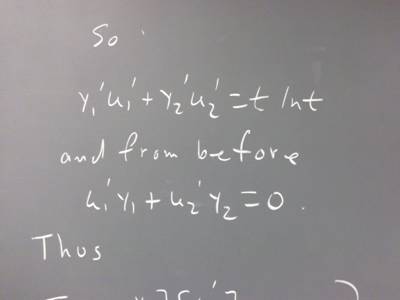 So
y₁'u₁'+y₂'u₂'=t lnt
and from before
u₁'y₁+u₂'y₂=0.
Thus